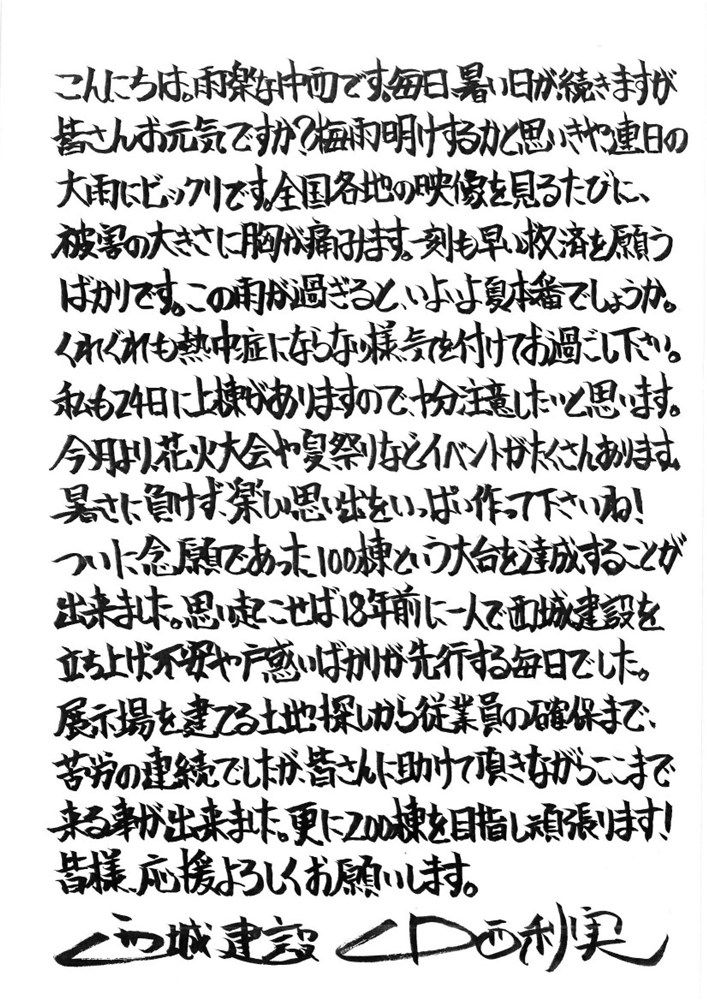 こんにちは。雨楽な中西です。毎日、暑い日が続きますが
皆さんお元気ですか?梅雨明けするかと思いきや、連日の
大雨にビックリです。全国各地の映像を見るたびに、
被害の大きさに胸が痛みます。一刻も早い救済を願う
ばかりです。この雨が過ぎると、いよいよ夏本番でしょうか。
くれぐれも熱中症にならない様、気を付けてお過ごし下さい。
私も24日に上棟がありますので、十分注意したいと思います。
今月より、花火大会や夏祭りなどイベントがたくさんあります。
暑さに負けず、楽しい思い出をいっぱい作って下さいね!
ついに念願であった100棟という大台を達成することが
出来ました。思い起こせば18年前に一人で西城建設を
立ち上げ、不安や戸惑いばかりが先行する毎日でした。
展示場を建てる土地探しから従業員の確保まで、
苦労の連続でしたが、皆さんに助けて頂きながらここまで
来る事が出来ました。更に200棟を目指し頑張ります!
皆様、応援よろしくお願いします。
西城建設 中西利実